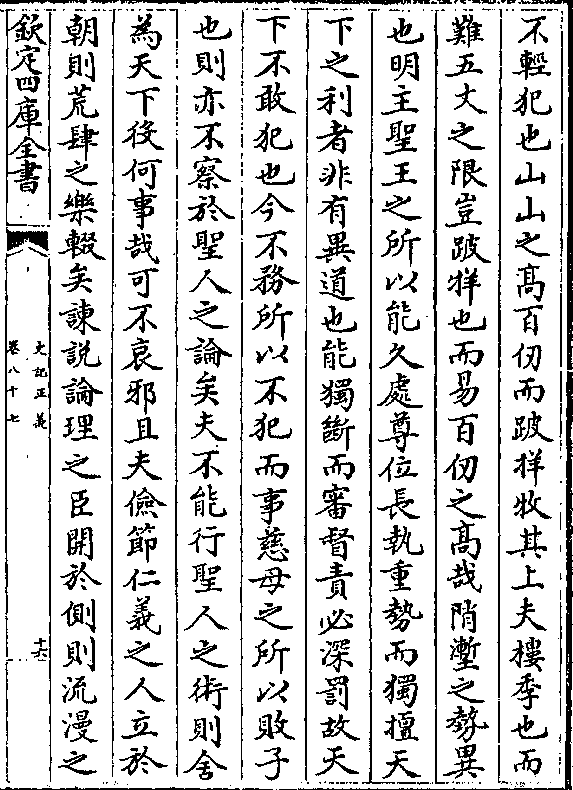 不輕犯也山山之髙百仞而跛牂牧其上夫樓季也而
難五丈之限豈跛牂也而易百仞之髙哉陗壍之勢異
也明主聖王之所以能久處尊位長執重勢而獨擅天
下之利者非有異道也能獨斷而審督責必深罰故天
下不敢犯也今不務所以不犯而事慈母之所以敗子
也則亦不察於聖人之論矣夫不能行聖人之術則舍
為天下役何事哉可不哀邪且夫儉節仁義之人立於
朝則荒肆之樂輟矣諫説論理之臣開於側則流漫之
欽定四庫全書
史記正義
卷八十七
十六